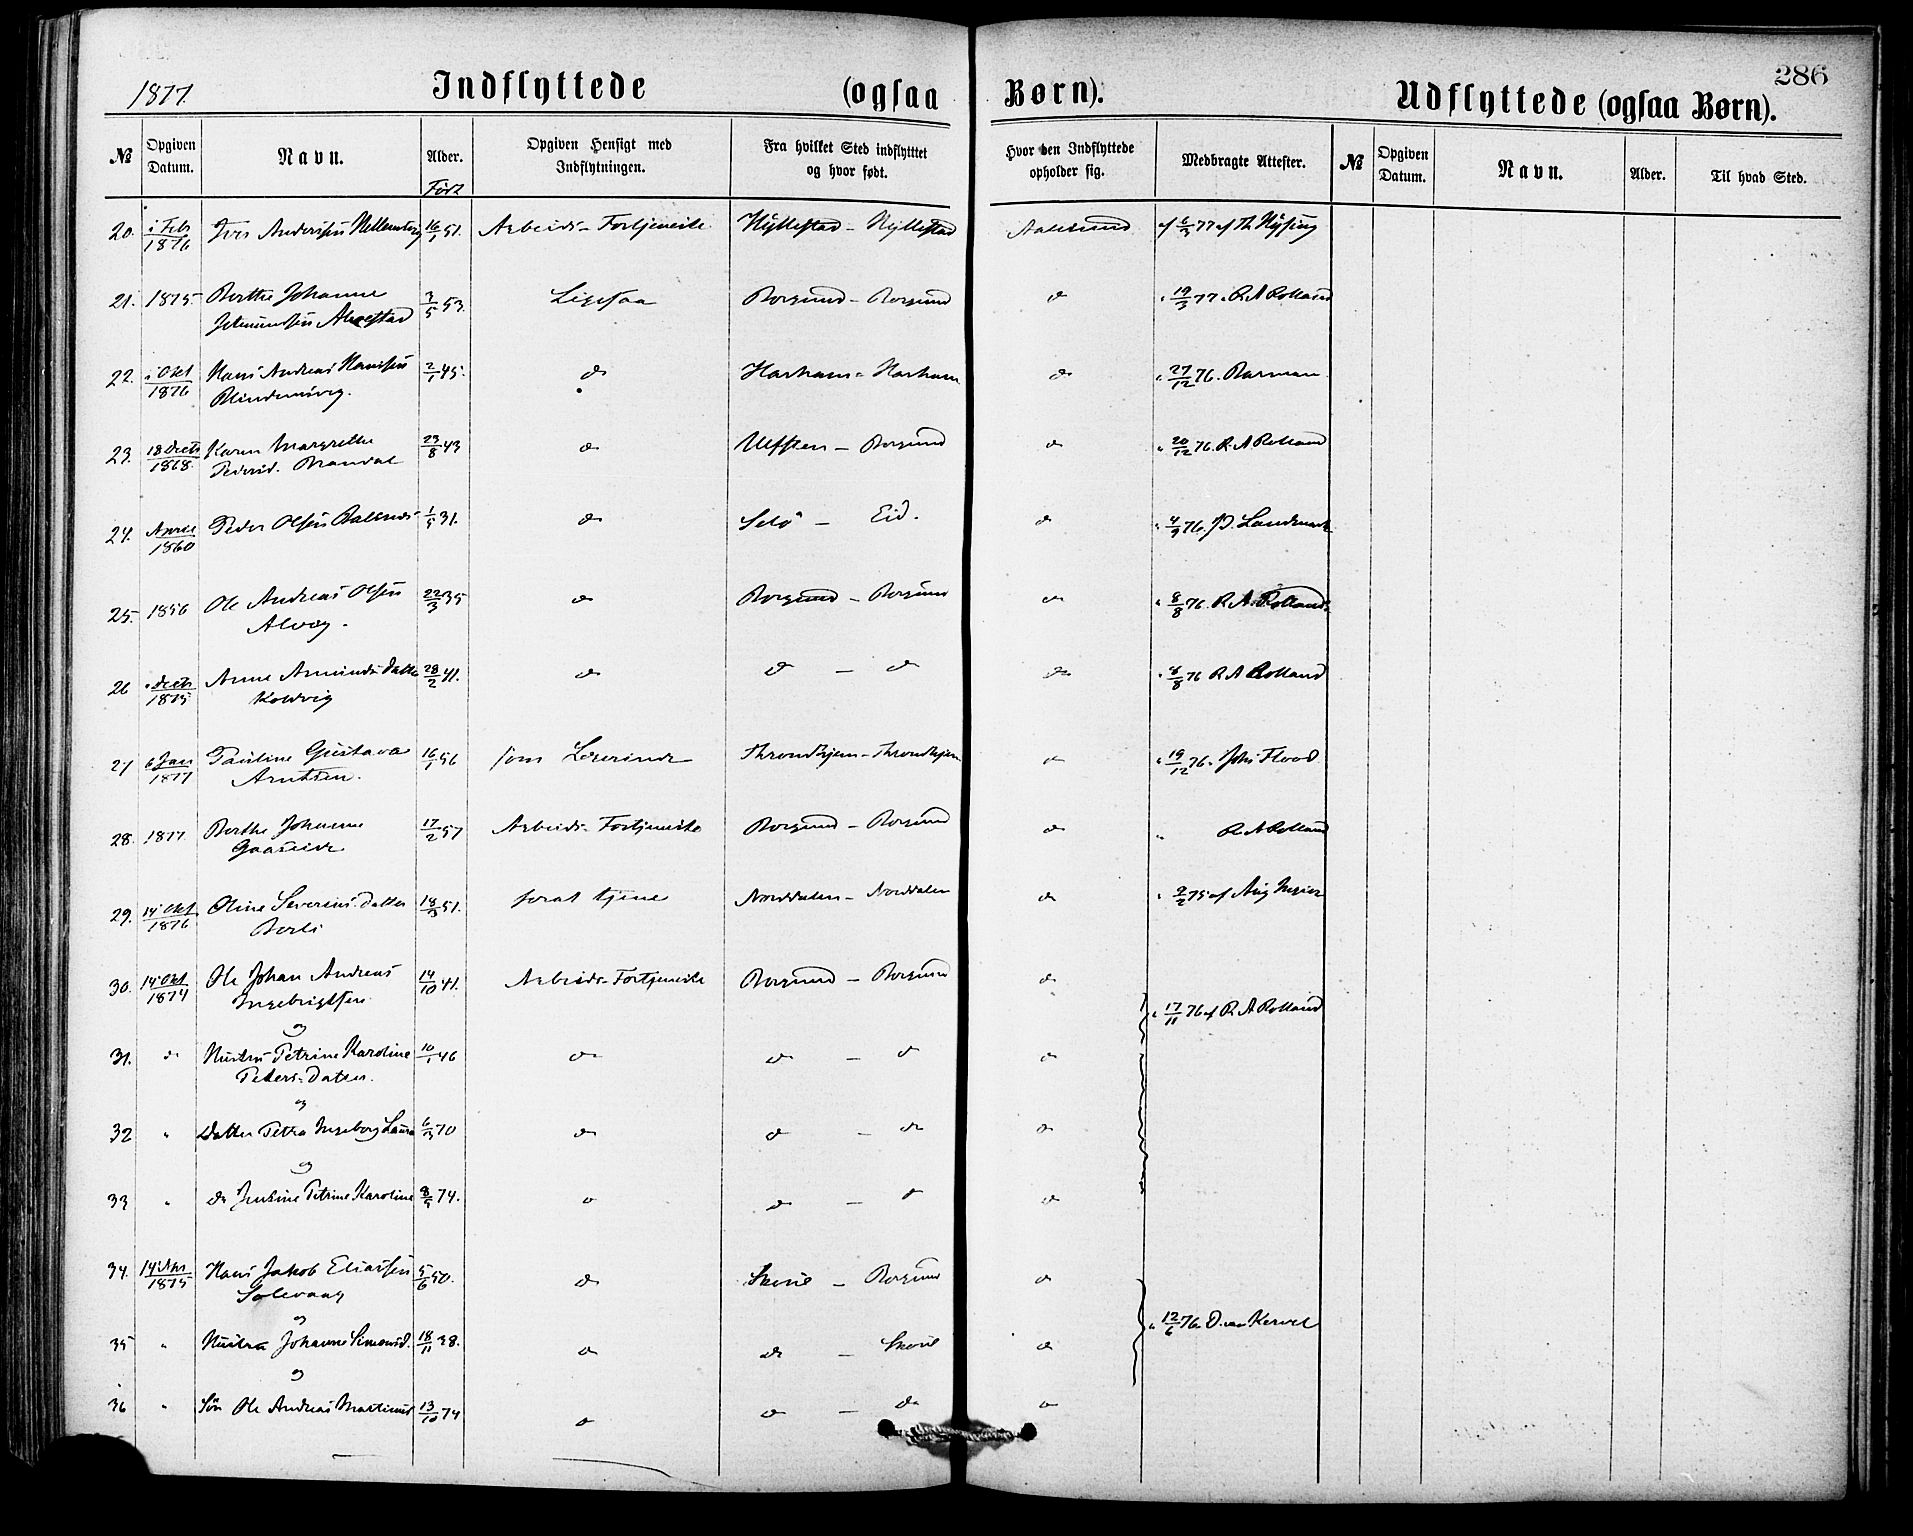 1877.
Indflyttede (ogsaa Børn).
Udflyttede (ogsaa Børn).
286
№ Opgiven Datum. Navn. Alder. Født Opgiven Hensigt med Indflytningen. Fra hvilket Sted indflyttet og hvor født. Hvor den Indflyttede opholder sig. Medbragte Attester. № Opgiven Datum. Navn. Alder. Til hvad Sted.
20. i Feb 1876 Iver Anderssen 16/1 51. Arbeids-Fortjeneste Hyllestad - Hyllestad Aalesund af 6/3 77 af Th
21. 1875. Berthe Johanne 3/5 53. Ligesaa Borgund - Borgund do " 19/3 77. R A Rolland
22. i Okt 1876 Hans Andreas Hanssen 2/1 45. do Harham - Harham do " 27/12 76. Barman
23. 18 1868. Karen Margrethe Pedersd. Brandal 23/8 43 do Ulfsten - Borgund do " 20/12 76. R. A Rolland
24. April 1860 Peder Olsen 1/5 31. do Selø - Eid. do " 4/9 76. P. Landmark
25. 1856 Ole Andreas Olsen Alvøg. 22/3 35 do Borgund - Borgund do " 8/8 76. R. A. Rolland
26 1875 Anne Datter Kolvig 28/2 41. do do - do do " 8/8 76 R A Rolland
27 6 Jan 1877 Pauline Gustava Arntsen. 16/1 56 som Lærerinde Throndhjem - Throndhjem do " 19/12 76. Johs Flood
28. 1877. Berthe Johanne Gaaseide 17/2 57 Arbeids-Fortjeneste Borgund - Borgund do " R A Rolland
29. 14 Okt 1876 Oline Severins Datter 51. forat tjene Norddalen - Norddalen do " 2/2 75 af Aug
30. 14 Okt 1874 Ole Johan Andreas Ingebrigtsen 14/10 41. Arbeids-Fortjeneste Borgund - Borgund do " 17/11 76 af R A Rolland
og
31. do Hustru Petrine Karoline Peders-Datter. 10/1 46 do do - do do
og
32 " Datter Petra Ingeborg Laura 70 do do - do do
og
33 " do Petrine Karoline 74. do do - do do
34. 1875 Hans Jakob Eliassen Solevaag 5/6 50. do Skoue - Borgund do " 12/6 76. D. van Kervel
og
35 " Hustru Johanne Simonsd. 18/11 38. do do - Skoue do
og
36 " Søn Ole Andreas Martinus 13/10 74 do do - do do